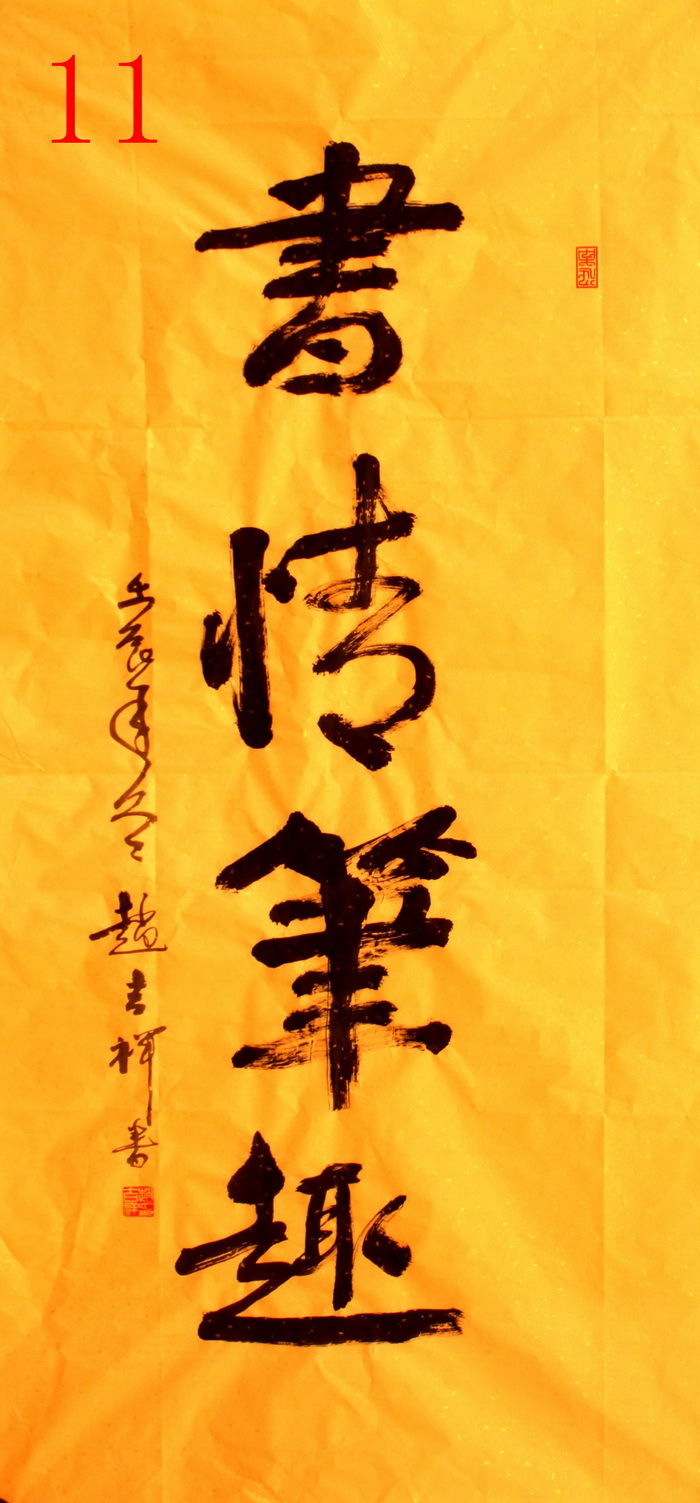 11
書情筆趣
壬辰年冬 趙吉祥書